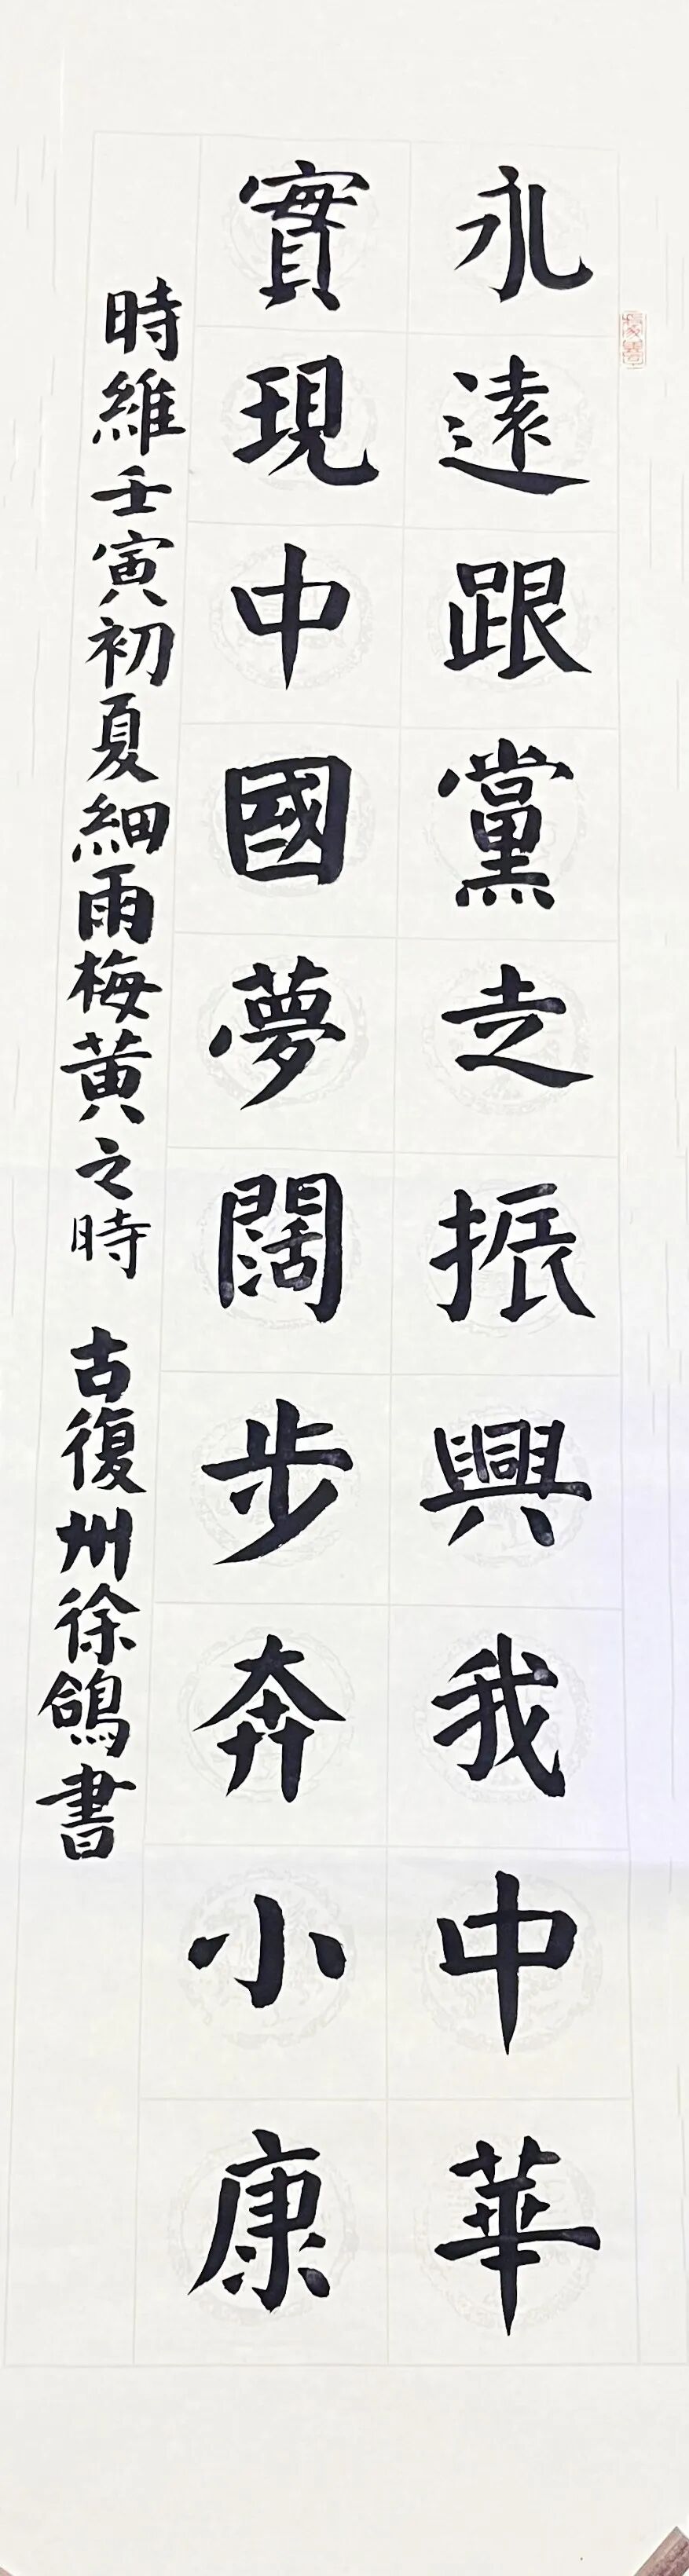 永遠跟黨走振興我中華
實現中國夢闊步奔小康
時維壬寅初夏細雨梅黃之時 古復州徐鴿書